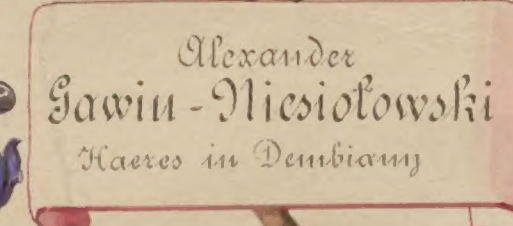 Alexander
Gawin-Niesiołowski
Haeres in Dembiany